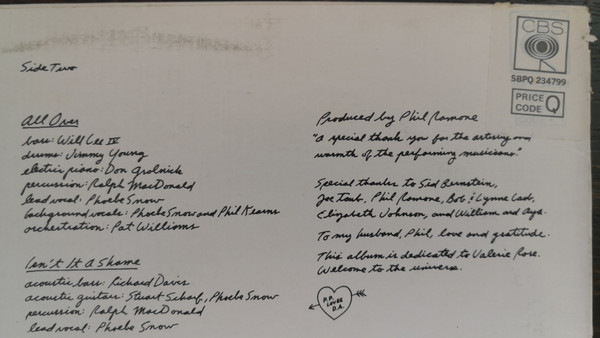 Side Two
All Over
bass: Will Lee IV
drums: Jimmy Young
electric piano: Don Grolnick
percussion: Ralph MacDonald
lead vocal: Phoebe Snow
background vocals: Phoebe Snow and Phil Kearns
orchestration: Pat Williams
Isn't It A Shame
acoustic bass: Richard Davis
acoustic guitars: Stuart Scharf, Phoebe Snow
percussion: Ralph MacDonald
lead vocal: Phoebe Snow
CBS
SBPQ 234799
PRICE
CODE Q
Produced by Phil Ramone
"A special thank you for the artistry and
warmth of the performing musicians."
Special thanks to Sid Bernstein,
Joe Taub, Phil Ramone, Bob & Lynne Lads,
Elizabeth Johnson, and William and Aya.
To my husband, Phil, love and gratitude.
This album is dedicated to Valerie Rose.
Welcome to the universe.
P.P.
LOVES
D.A.